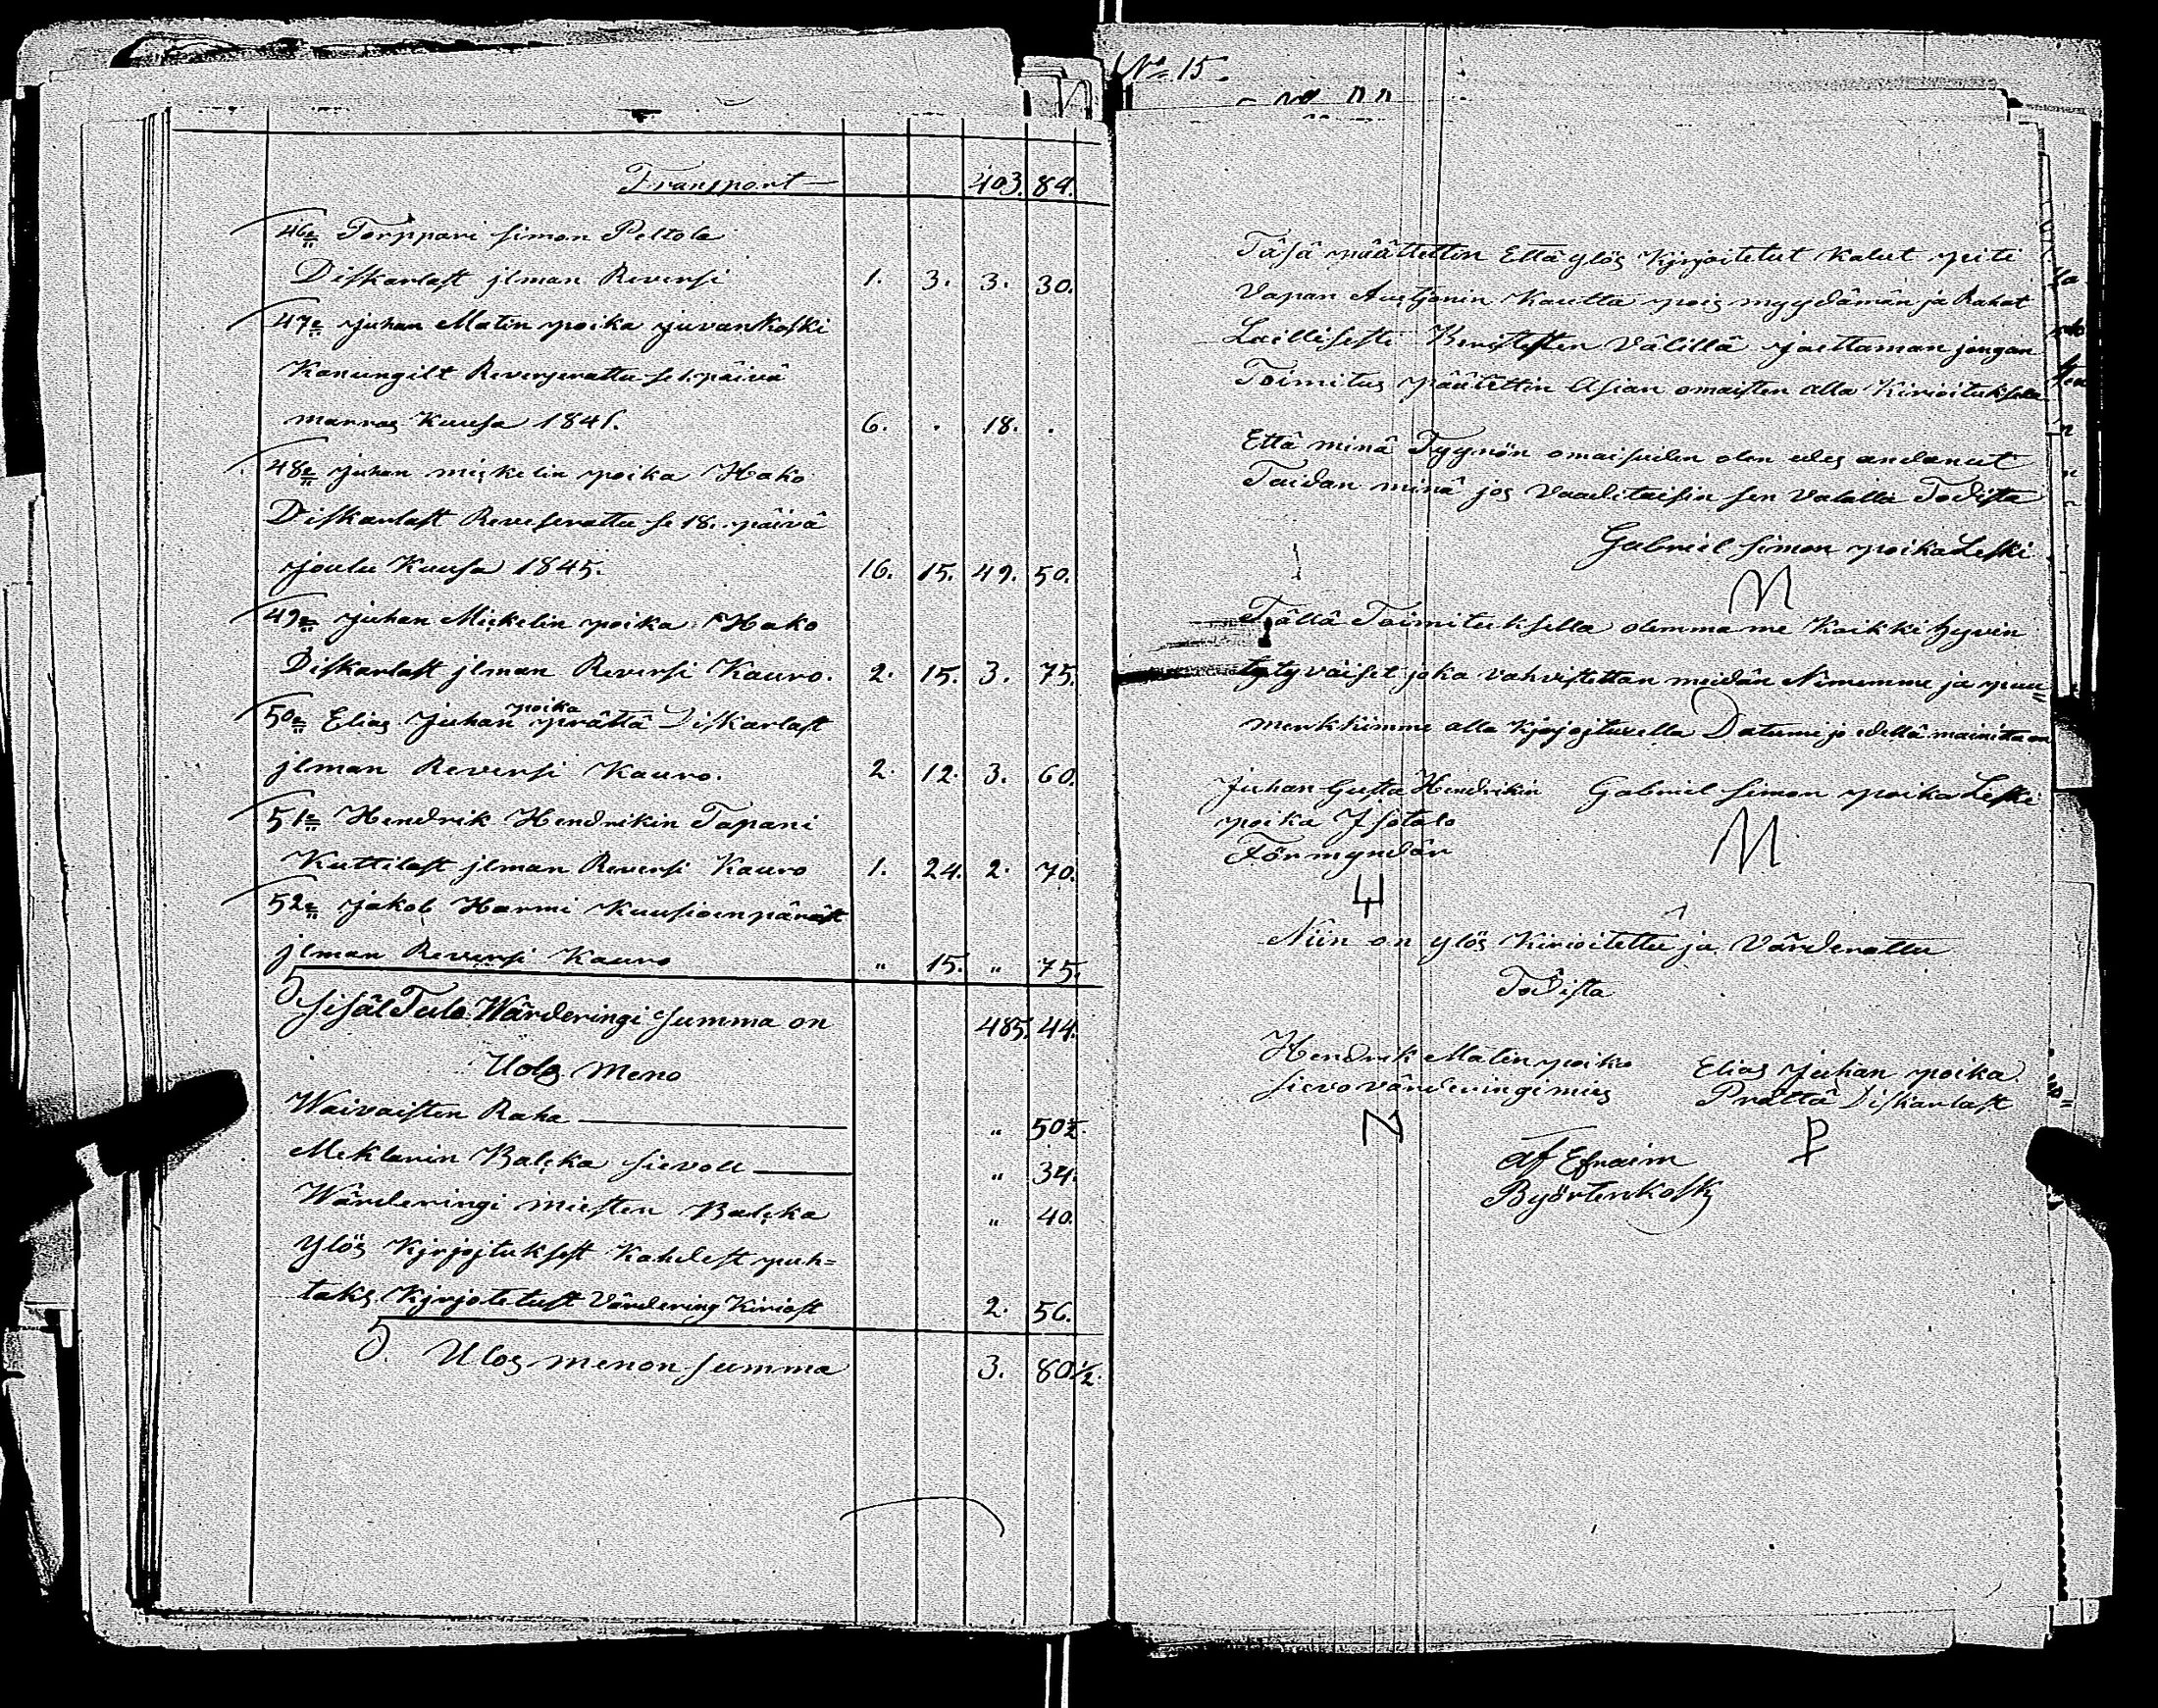 Transport — 403. 84.
46:e Torppari Simon Peltola
Diskarlast jlman Reversi 1. 3. 3. 30.
47:e Juhan Matin poika juvankoski
Konungilt Reverserattu se päivä
marras Kuusa 1841. 6. . 18. .
48:e Juhan miskelin poika Hako
Diskarlast Reveserattu se 18. päivä
joulu Kuusa 1845. 16. 15. 49. 50.
49:e Juhan Miekelin poika Hako
Diskarlast jlman Reversi Kauro. 2. 15. 3. 75.
50:e Elias Juhan poika prättä Diskarlast
jlman Reversi Kauro. 2. 12. 3. 60.
51:e Hendrik Hendrikin Tapani
Kuttilast jlman Reversi Kauro 1. 24. 2. 70.
52:e Jakob Harmi Kuusioenpäräst
jlman Reversi Kauro " 15. " 75.
Sisäl Tulo Wärderingi Summa on 485. 44.
Uolg Meno
Waivaisten Raha — " 50½.
Meklarin Balcka Sievoll — " 34.
Wärderingi miesten Balcka " 40.
Ylös Kjrjojtuksest Kahdest puh=
taks Kjrjotetust Värdering Kiriost 2. 56.
S. Ulos menon Summa 3. 80½.
No 15.
Täsä päätettin Että ylös Kjrjoitetut Kalut peiti
Vapan Auctjonin Kautta pois myydämän ja Rahat
Laillisesti Välillä jaettaman jongan
Toimitus päätettin Asian omaisten alla Kirioituksela
Että minä Tyynön omaisuden olen edes andanut
Taidan minä jos vaaditaisin sen Valalla Todista
Gabriel Simon poika Leski
M
Tällä Toimituksella olemma me Kaikki hyvin
tytyväiset joka vahvistettan meidän Nimemme ja puu=
merkkimme alla Kjrjojtuxella Datumi jo edellä mainittu on
Juhan Gusta Hendrikin Gabriel Simon poika Leski
poika Jsotalo M
Förmyndär
Niin on ylös Kirioitettu ja Värderattu
Todista
Hendrik Matin poika Elias Juhan poika
Sievo värderingimies Prättä Diskarlast
N P
af Efraim
Byörtenkosk